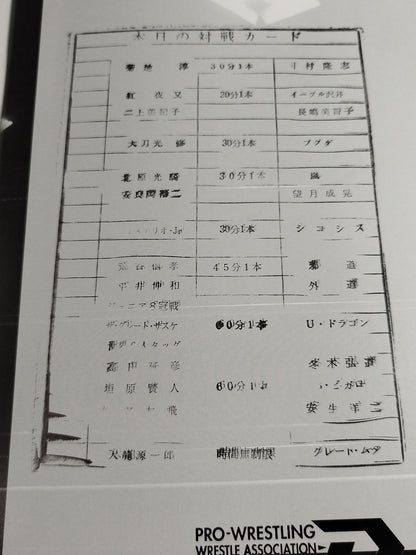 本日の対戦カード
菊地 淳 30分1本
紅夜叉 20分1本 イーグル沢井
二上美紀子 長嶋美智子
大刀光 修 30分1本 フグダ
北原光騎 30分1本 嵐
安良岡裕二 望月成晃
・Jr 30分1本 シコシス
荒谷信孝 45分1本
平井伸和 外道
ジュニア8冠戦
ザ・グレート・サスケ 60分1本 U・ドラゴン
6人タッグ
高田延彦 冬木弘道
垣原賢人 60分1本
安生洋二
天龍源一郎 時間無制限 グレート・ムタ
PRO-WRESTLING
WRESTLE ASSOCIATION